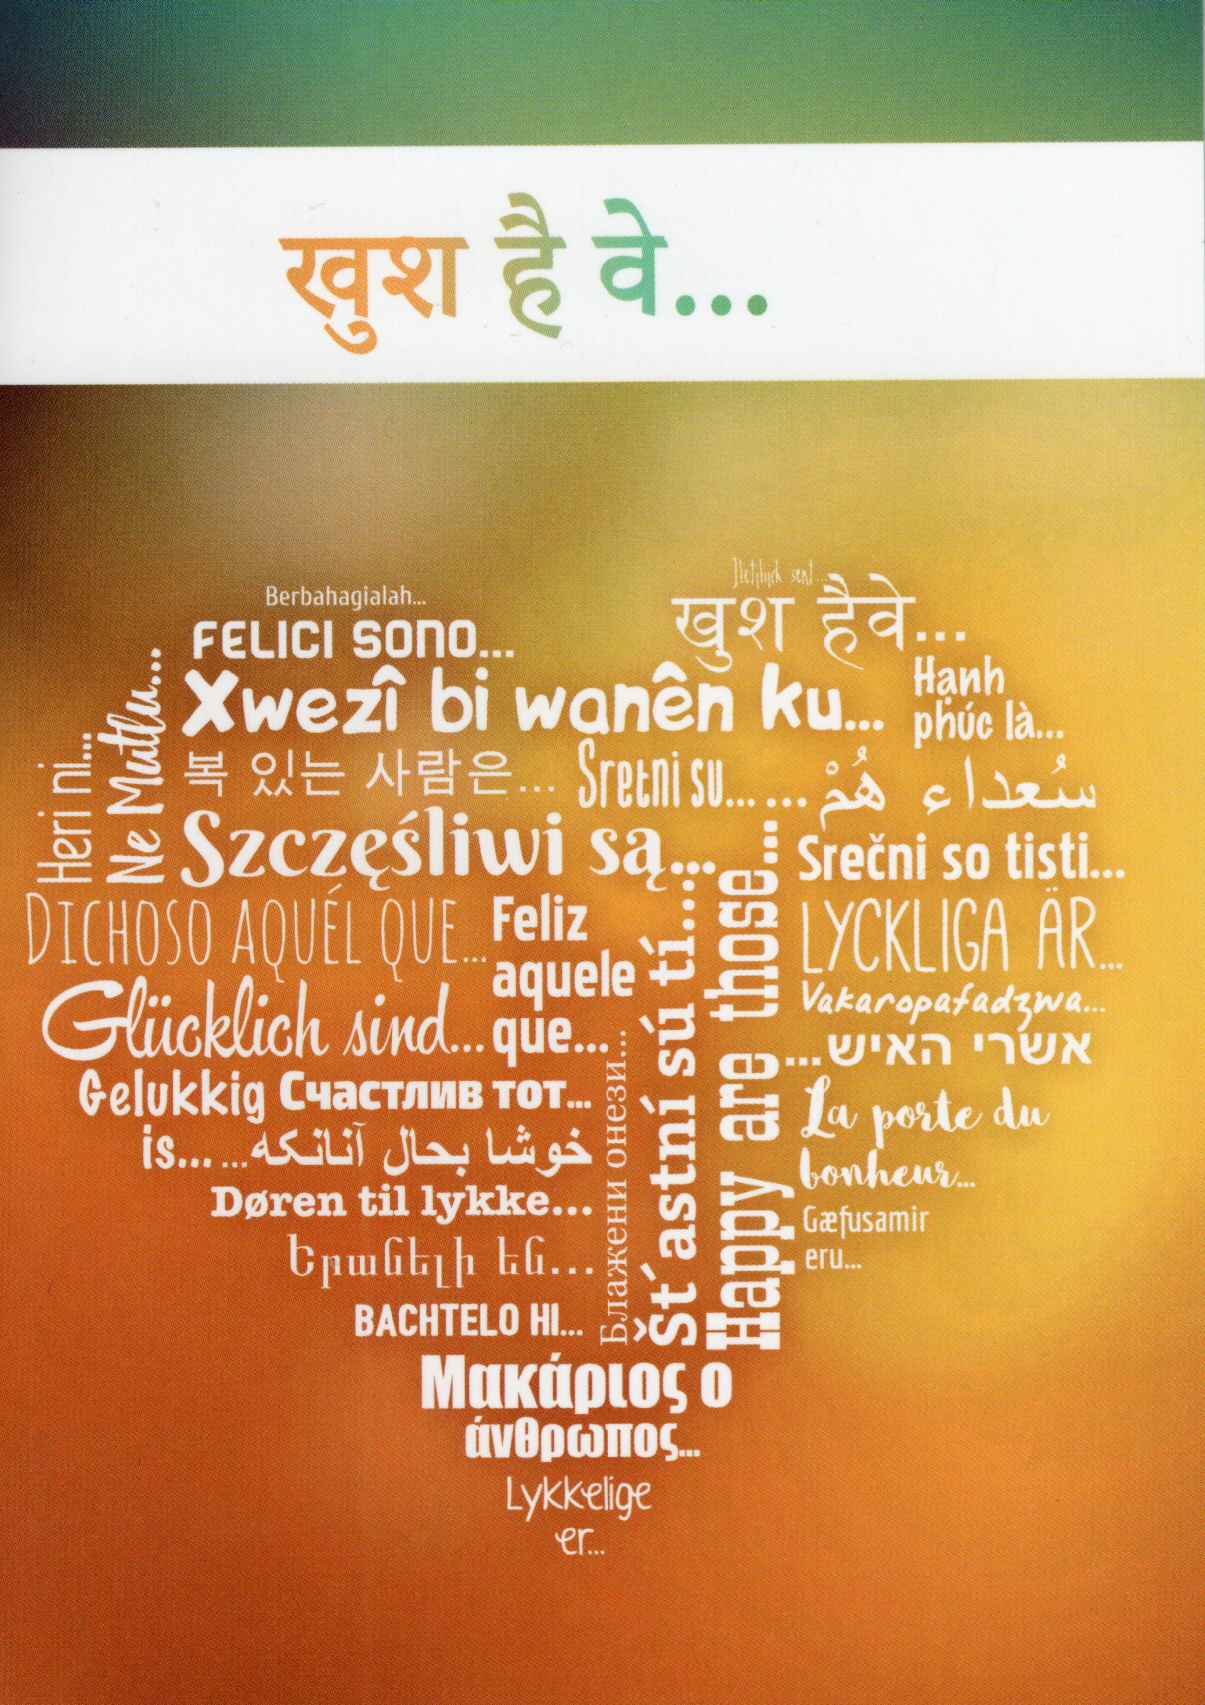 खुश है वे...
Berbahagialah...
FELICI SONO...
खुश हैवे...
Xwezî bi wanên ku...
Hạnh
phúc là...
Heri ni...
Ne Mutlu...
복 있는 사람은...
Sretni su...
سُعداء هُمْ...
Szczęśliwi są...
Srečni so tisti...
DICHOSO AQUÉL QUE...
Feliz
aquele
que...
Št´astní sú tí...
Happy are those...
LYCKLIGA ÄR...
Vakaropafadzwa...
Glücklich sind...
אשרי האיש...
Gelukkig
is...
Счастлив тот...
خوشا بحال آنانکه...
La porte du
bonheur...
Døren til lykke...
Блажени онези...
Gæfusamir
eru...
Երանելի են...
BACHTELO HI...
Μακάριος ο
άνθρωπος...
Lykkelige
er...